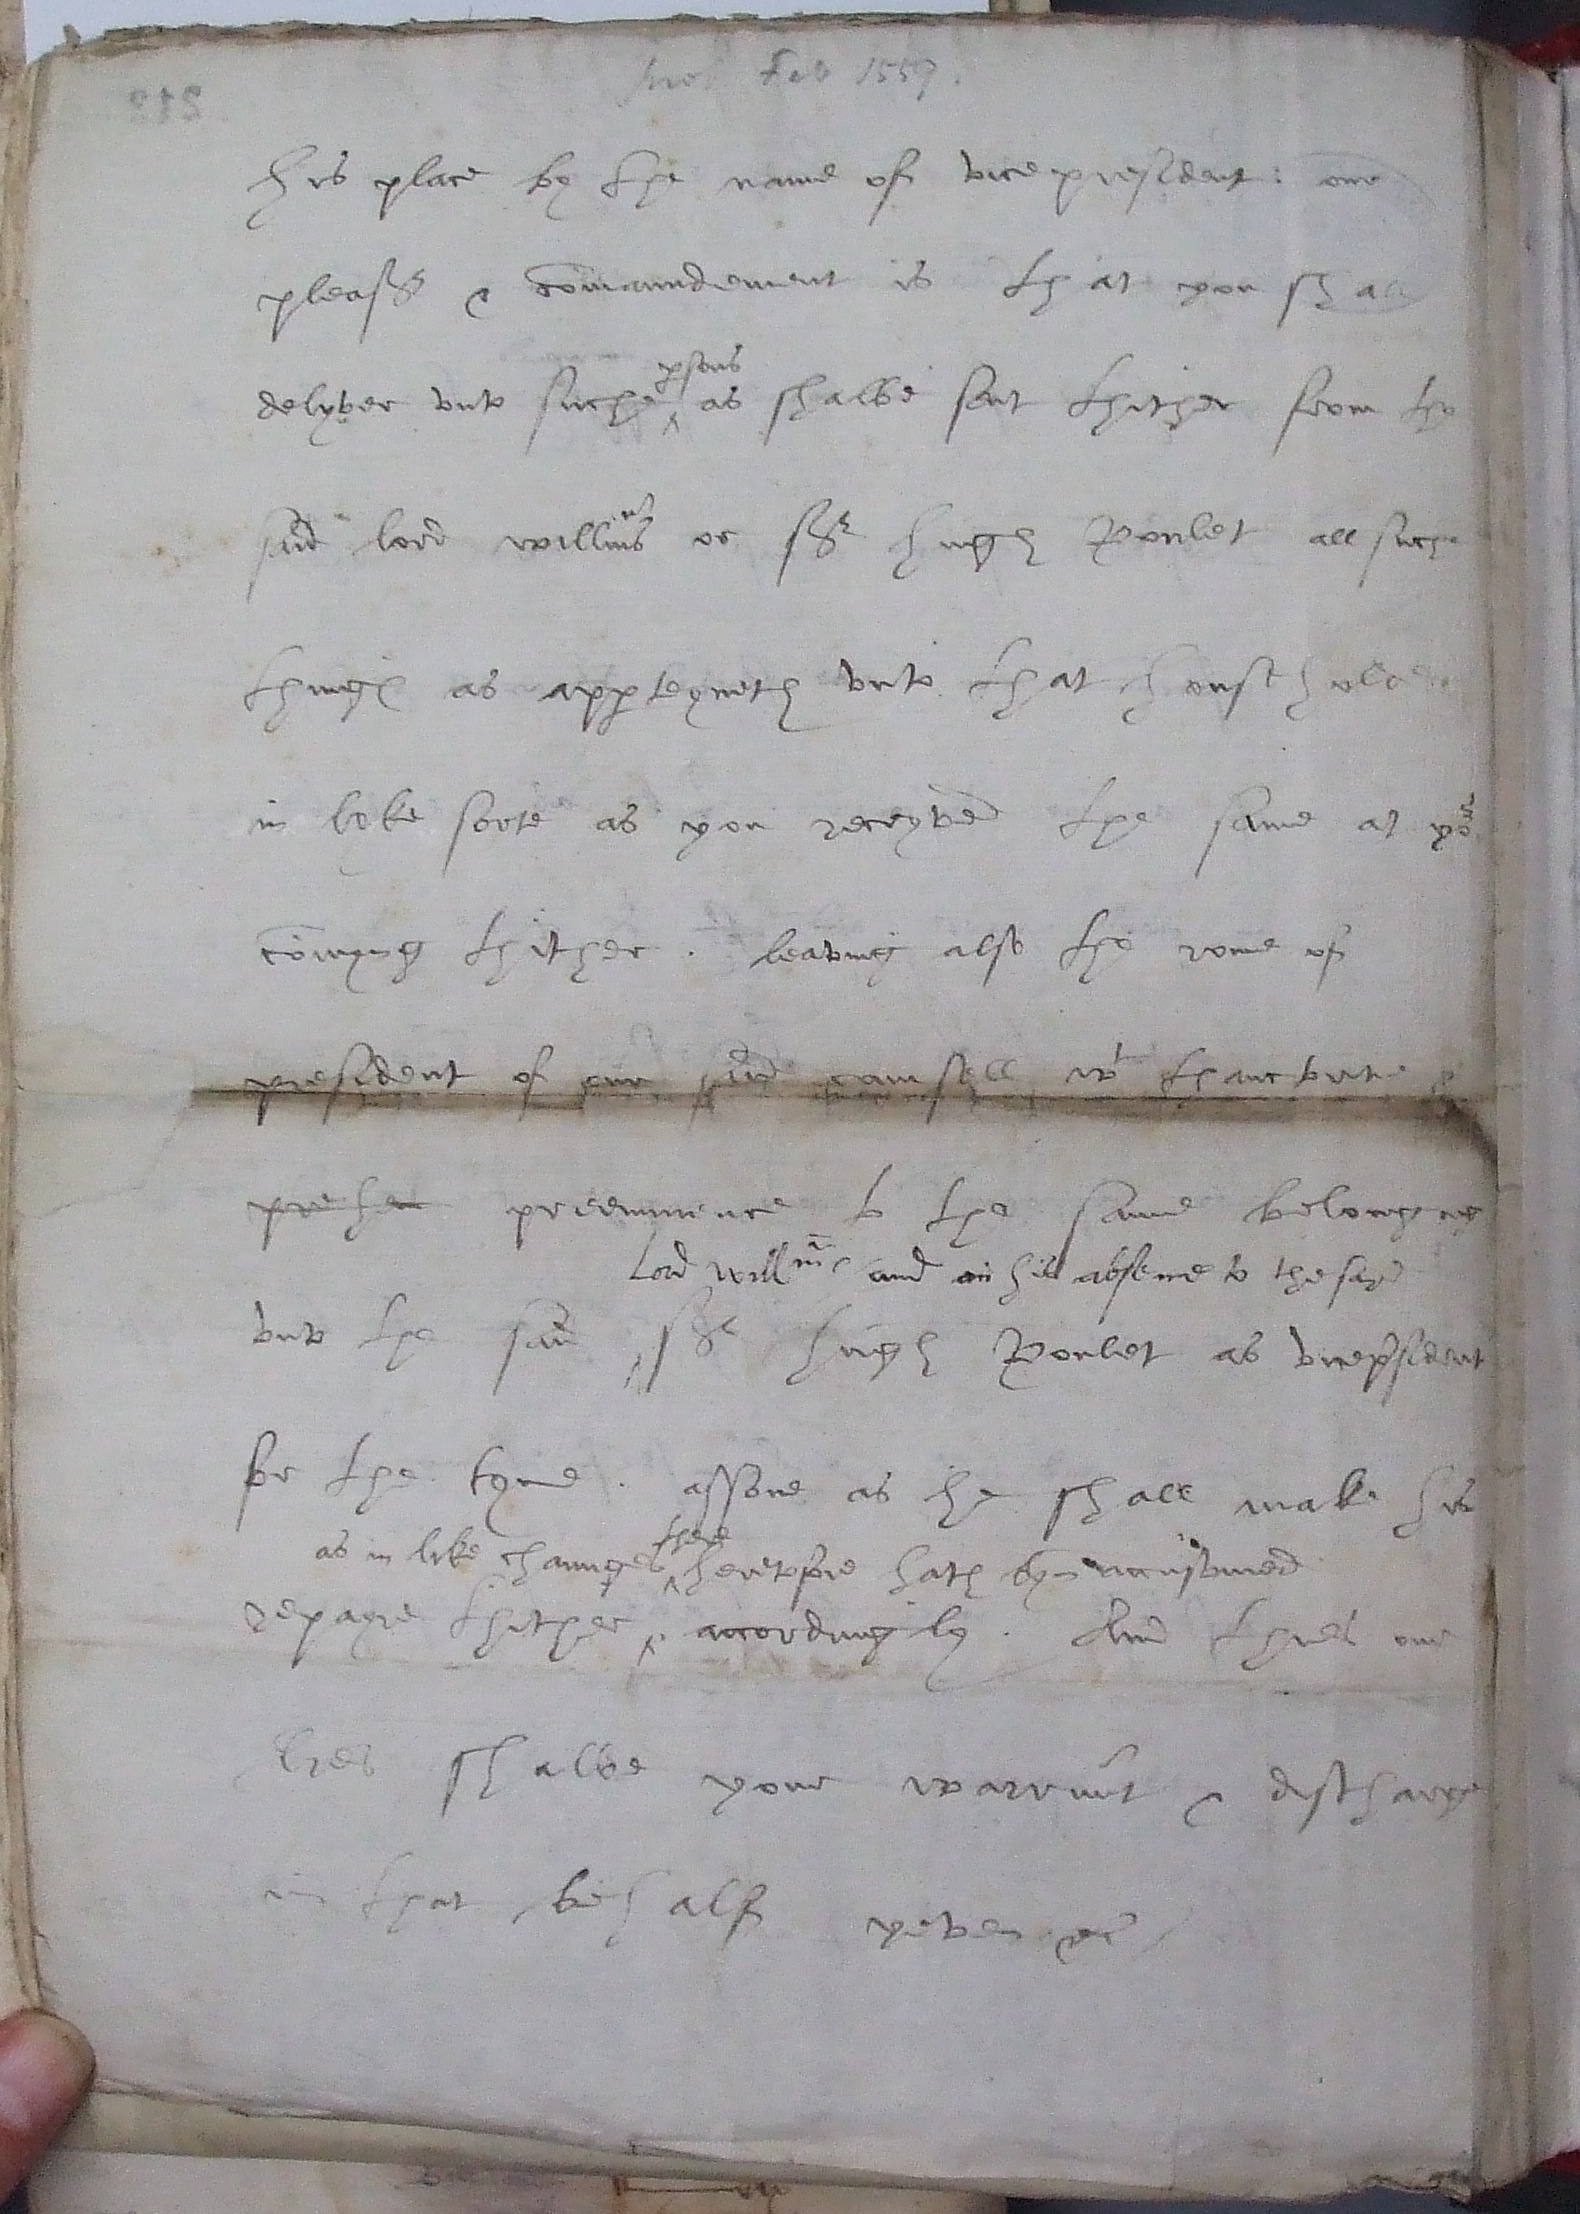 Feb 1559.
his place by the name of vicepresident: our
pleasr & comaundement is that you shall
delyver unto suche ^ psons as shalbe sent thither from the
said lord willms or Sr hugh Poulet all suche
things as appteyneth unto that houshold
in lyke sorte as you receyved the same at yor
comyng thither. leaving also the rome of
president of our said counsell wt thauctorite &
prehe preeminence to the same belonging
Lord willms and in his absence to the sayd
unto the said ^ Sr hugh Poulet as vicepsident
for the tyme. assone as he shall make his
as in like chaunges ^ there heretofore hath byn accustomed
repayre thither ^ accordingly. And thies our
lres shalbe your warrunt & discharge
in that behalf yeven &c